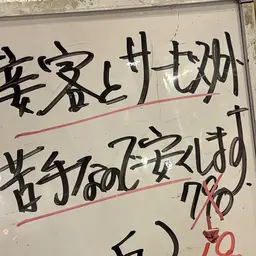 接客とサービスが
苦手なので安くします。